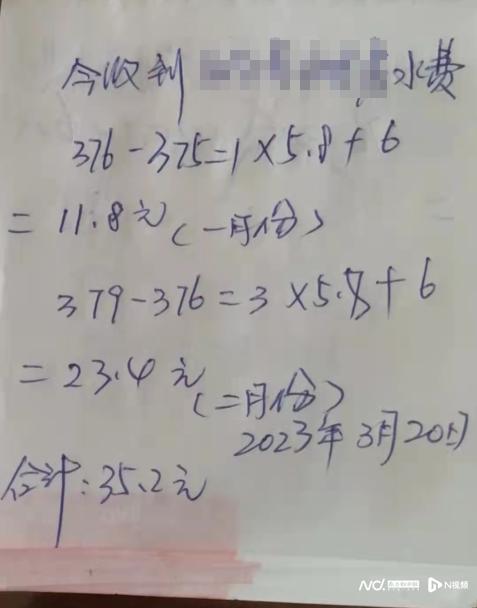 今收到 水费
376-375=1×5.8+6
=11.8元(一月份)
379-376=3×5.8+6
=23.4元
(二月份)
2023年3月20日
合计:35.2元
N视频